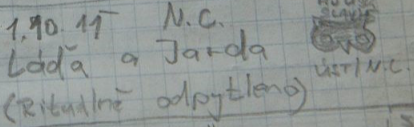 1.10.11 N.C.
Láďa a Jarda
(Rituálně odpytleno)
ÚSTÍ N.C.